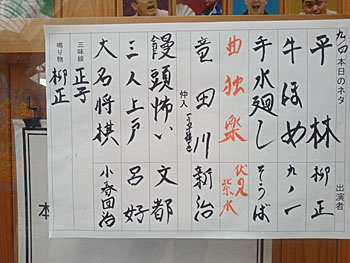 本日のネタ 出演者
平林 柳正
牛ほめ 九ノ一
手水廻し そうば
曲独楽 伏見紫水
竜田川 新治
仲入
饅頭怖い 文都
三人上戸 呂好
大名将棋 小春団治
三味線 正子
鳴り物 柳正
本